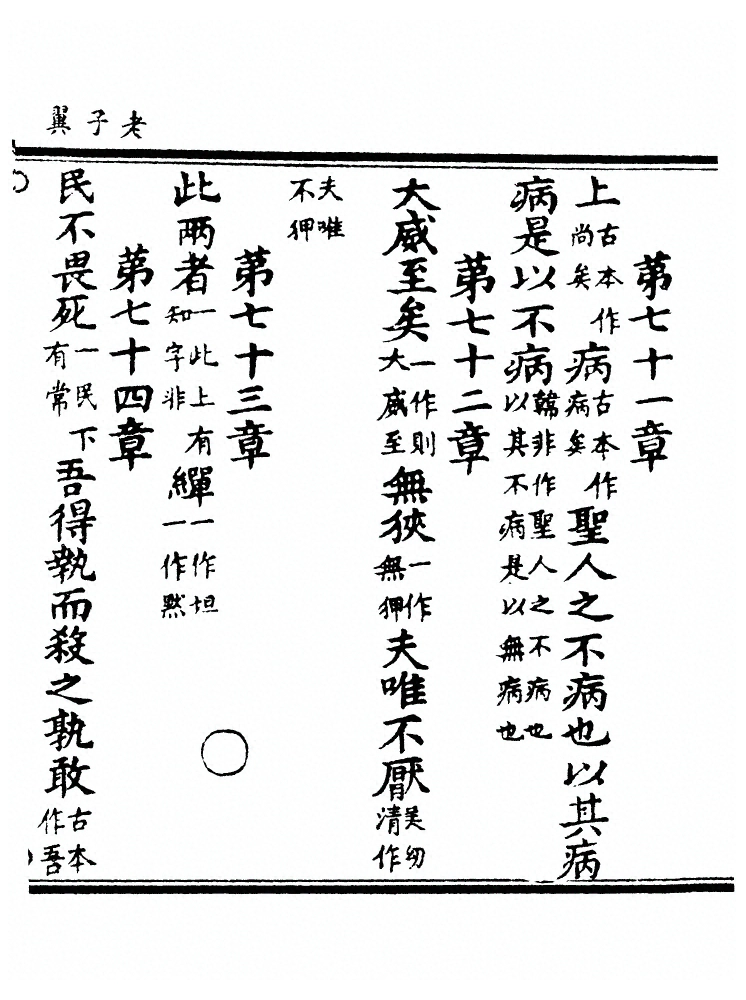 老子翼
第七十一章
上古本作尚矣病古本作病矣聖人之不病也以其病
病是以不病韓非作聖人之不病也以其不病是以無病也
第七十二章
大威至矣一作則大威至無狹一作無狎夫唯不厭吴幼清作
夫唯不狎
第七十三章
此兩者一此上有知字非繟一作坦一作默
第七十四章
民不畏死一民下有常吾得執而殺之孰敢古本作吾